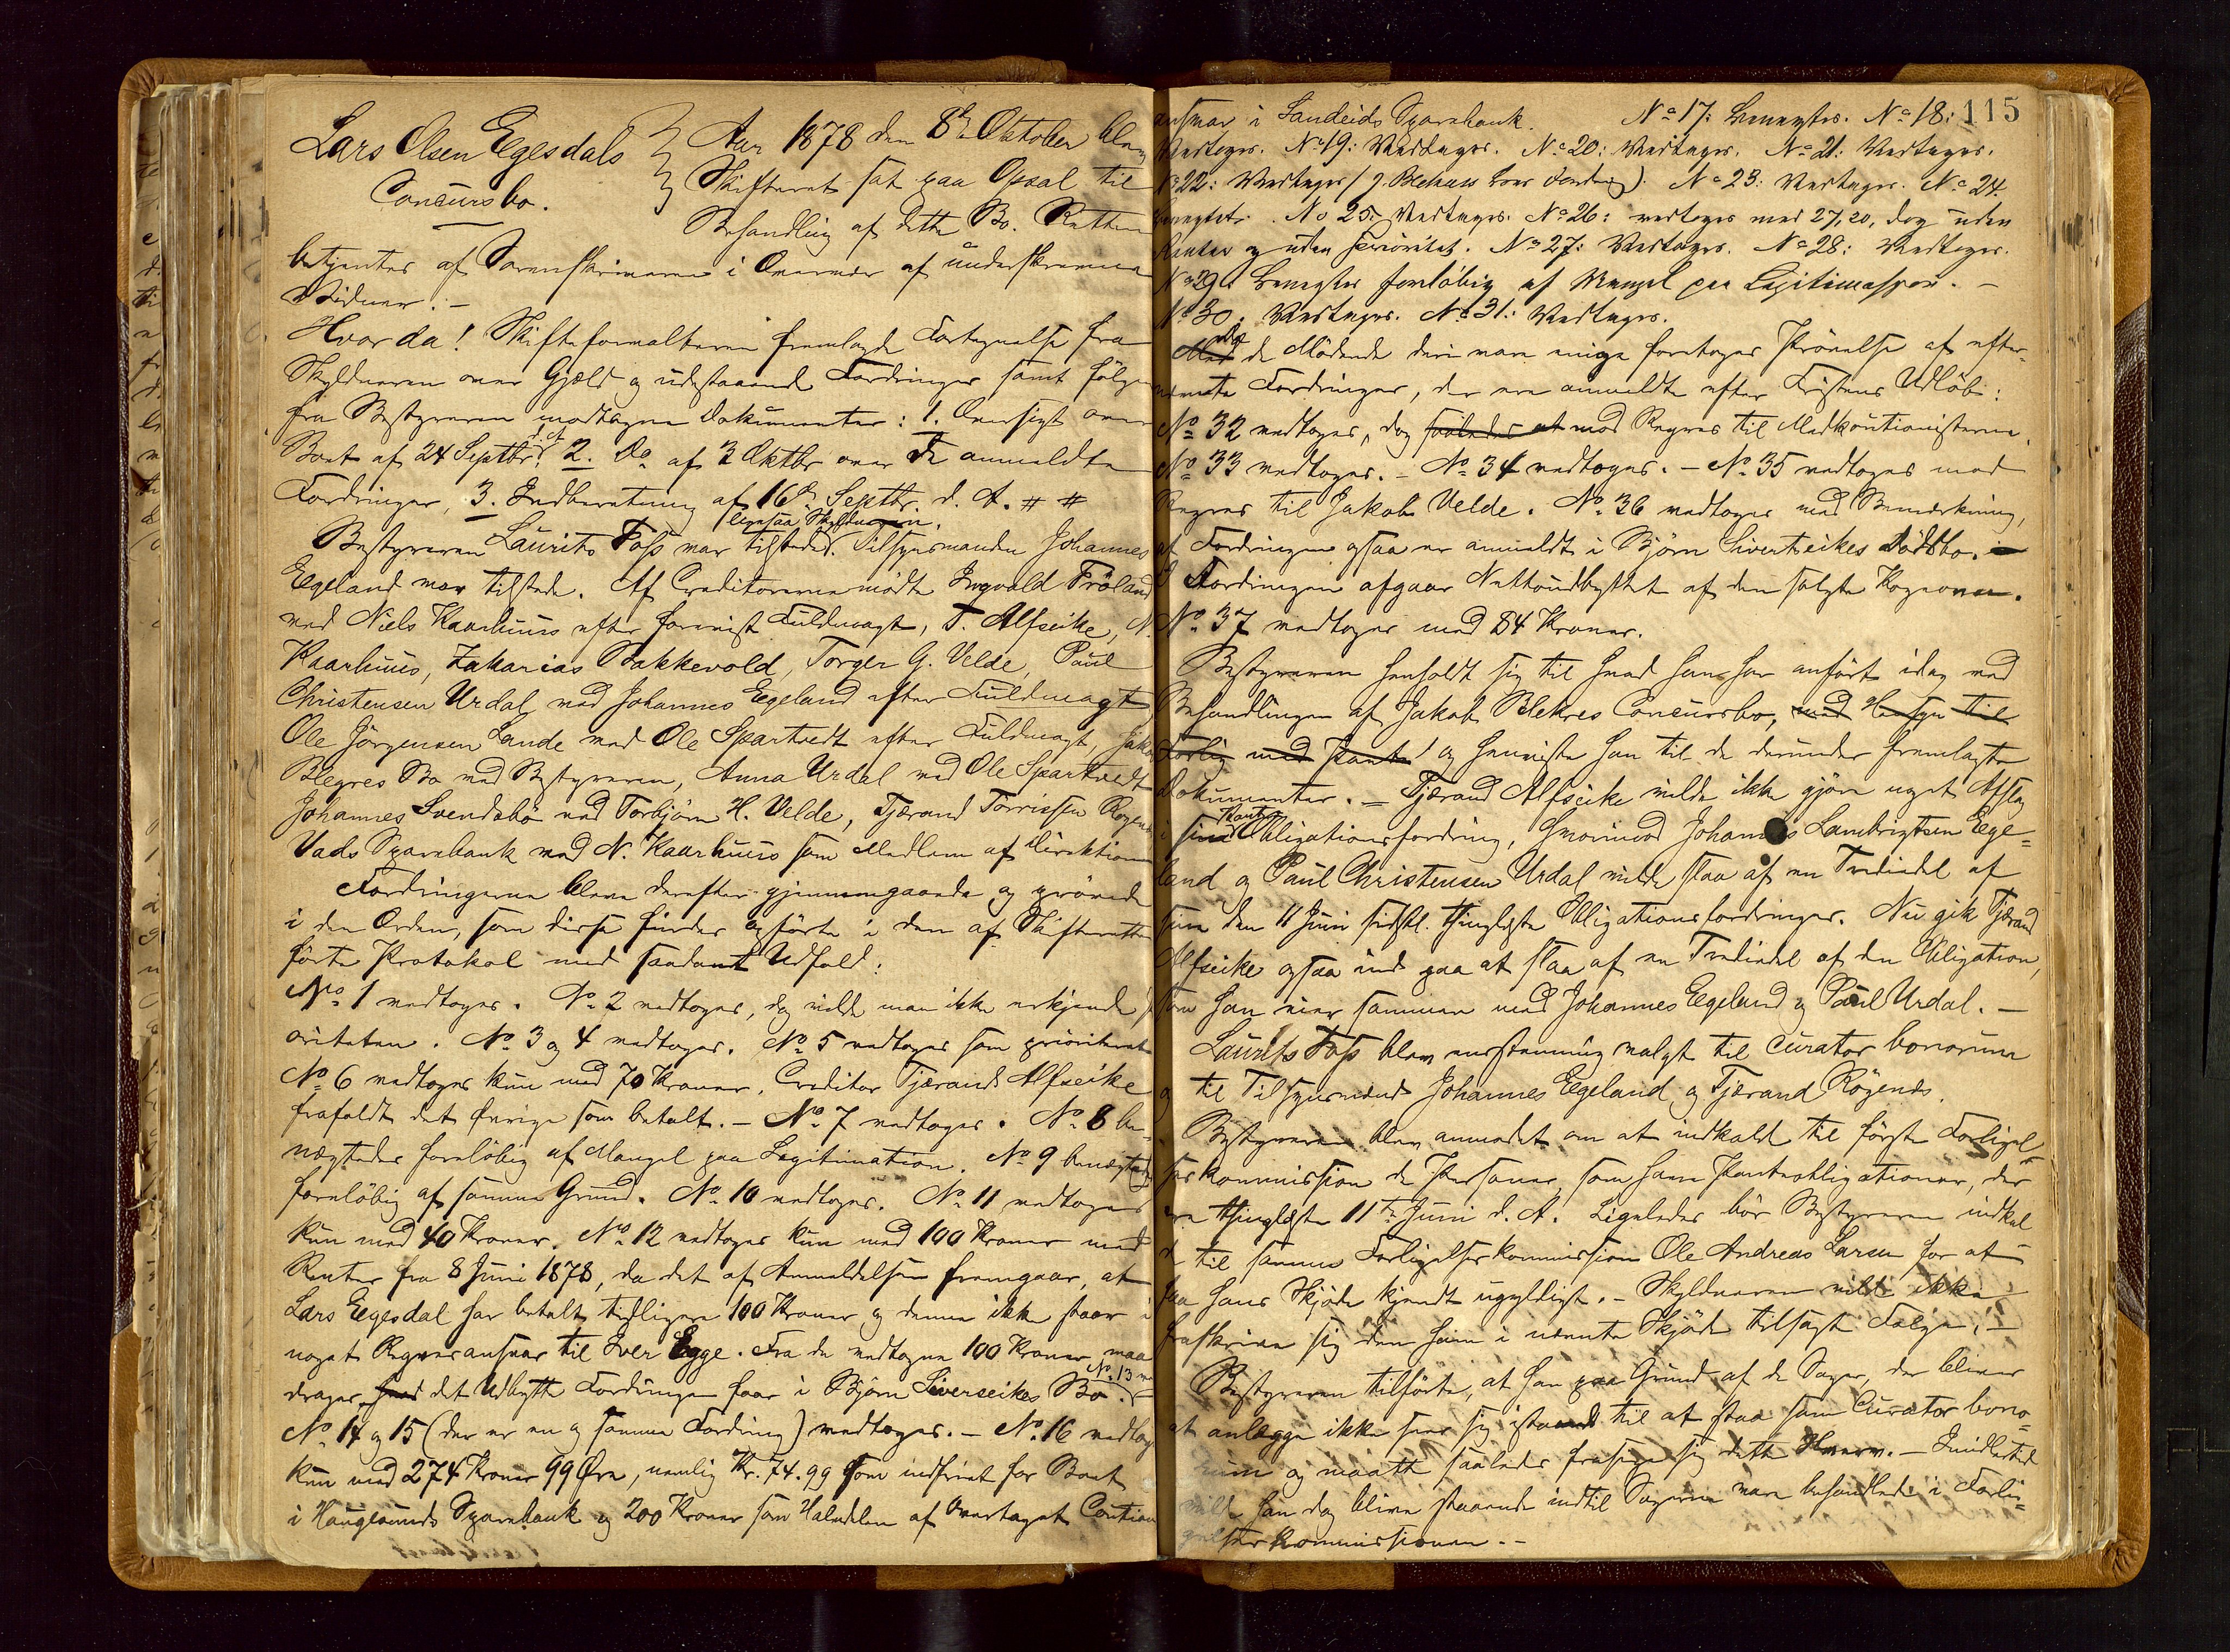 Lars Olsen Egesdals
Concursbo.
Aar 1878 den 8de Oktober blev
Skifteret sat paa Opsal til
Behandling af dette Bo. Retten
betjentes af Sorenskriveren i Overvær af underskrevne
Vidner: -
Hvorda! Skifteforvalteren fremlagde Fortegnelse fra
Skyldneren over Gjæld og udestaaende Fordringer samt følgende
fra Bestyreren modtagne Dokumenter: 1. Oversigt over
Boet af 24 Septbr. d. A. 2. Do af 3 Oktbr over de anmeldte
Fordringer, 3. Indberetning af 16de Septbr. d. A. # #
Bestyreren Laurits Foss var tilstede, ligesaa Skyldneren. Tilsynsmanden Johannes
Egeland var tilstede. Af Creditorerne mødte Ingvald Frøland
ved Niels Kaarhuus efter forevist Fuldmagt, T. Alfseike, N.
Kaarhuus, Zakarias Bakkevold, Torger G. Velde, Paul
Christensen Urdal ved Johannes Egeland efter Fuldmagt
Ole Jørgensen Lande ved Ole Spartvedt efter Fuldmagt, Jakob
Blegres Bo ved Bestyreren, Anna Urdal ved Ole Spartvedt
Johannes Svendsbø ved Torbjørn H. Velde, Tjerand Torrissen Røgenes
Vads Sparebank ved N. Kaarhuus som Medlem af Direktionen
Fordringerne bleve derefter gjennemgaaede og prøvede
i den Orden, som disse findes opførte i den af Skifteretten
førte Protokol med saadant Udfald:
No 1 vedtoges. No 2 vedtoges, dog vilde man ikke erkjende Pri-
oriteten. No 3 og 4 vedtoges. No 5 vedtoges som prioriteret
No 6 vedtoges kun med 70 Kroner. Creditor Tjerand Alfseike
frafaldt det øvrige som betalt. - No 7 vedtoges. No 8 be-
nægtedes foreløbig af Mangel paa Legitimation. No 9 benægtedes
foreløbig af samme Grund. No 10 vedtoges. No 11 vedtoges
kun med 40 Kroner. No 12 vedtoges kun med 100 Kroner med
Renter fra 8 Juni 1878, da det af Anmeldelsen fremgaar, at
Lars Egesdal har betalt tidligere 100 Kroner og denne ikke staar i
noget Regresansvar til Iver Egge. Fra de vedtagne 100 Kroner maa
drages det Udbytte Fordringen faar i Bjørn Siverseikes Bo. No 13
No 14 og 15 (der er en og samme Fordring) vedtoges. - No 16 vedtoges
kun med 274 Kroner 99 Øre, nemlig Kr. 74.99 som indfriet for Boet
i Haugesunds Sparebank og 200 Kroner som Halvdelen af overtaget Caution
115
ansvar i Sandeids Sparebank. No 17: Benegtes. No 18:
Vedtoges. No 19: Vedtoges. No 20: Vedtoges. No 21: Vedtoges.
No 22: Vedtoges. No 23: Vedtoges. No 24.
benegtet. No 25: Vedtoges. No 26: vedtoges med 27,20, dog uden
Renter og uden Prioritet. No 27: Vedtoges. No 28: Vedtoges.
No 29. Benegtes foreløbig af Mangel paa Legitimation. -
No 30. Vedtoges. No 31: Vedtoges.
de Mødende deri vare enige foretoges Prøvelse af efter-
nævnte Fordringer, der ere anmeldte efter Fristens Udløb:
No 32 vedtoges, dog saaledes at med Regres til Medkautionisterne.
No 33 vedtoges. - No 34 vedtoges. - No 35 vedtoges med
Regres til Jakob Velde. No 36 vedtoges med Bemærkning,
at Fordringen ogsaa er anmeldt i Bjørn Sivertseikes Dødsbo.
I Fordringen afgaar Nettoudbyttet af den solgte
No 37 vedtoges med 84 Kroner.
Bestyreren henholdt sig til hvad han har anført idag ved
Behandlingen af Jakob Blekres Concursbo, med Hensyn til
Forlig med Pante og henviste han til de derunder fremlagte
Dokumenter. - Tjerand Alfseike vilde ikke gjøre noget Afslag
i sin Pante Obligationsfordring, hvorimod Johannes Lambrigtsen Ege-
land og Paul Christensen Urdal vilde slaa af en Trediedel af
sine den 11 Juni sidstl. thinglæste Obligationsfordringer. Nu gik Tjerand
Alfseike ogsaa ind paa at slaa af en Trediedel af den Obligation,
som han eier sammen med Johannes Egeland og Paul Urdal. -
Laurits Foss blev enstemmig valgt til curator bonorum
og til Tilsynsmænd Johannes Egeland og Tjerand Røgenes.
Bestyreren blev anmodet om at indkalde til første Forligel-
seskommission de Personer, som have Panteobligationer, der
ere thinglæste 11te Juni d. A. Ligeledes bør Bestyreren indkal
de til samme Forligelseskommission Ole Andreas Larsen for at
faa hans Skjøde kjendt ugyldigt. - Skyldneren vilde ikke
fraskrive sig den ham i nævnte Skjøde tilsagte Følge. -
Bestyreren tilførte, at han paa Grund af de Sager, der bliver
at anlægge ikke saa sig istand til at staa som Curator bono-
rum og maatte saaledes frasige sig dette Hverv. - Imidlertid
vilde han dog blive staaende indtil Sagerne vare behandlede i Forli-
gelseskommissionen. -